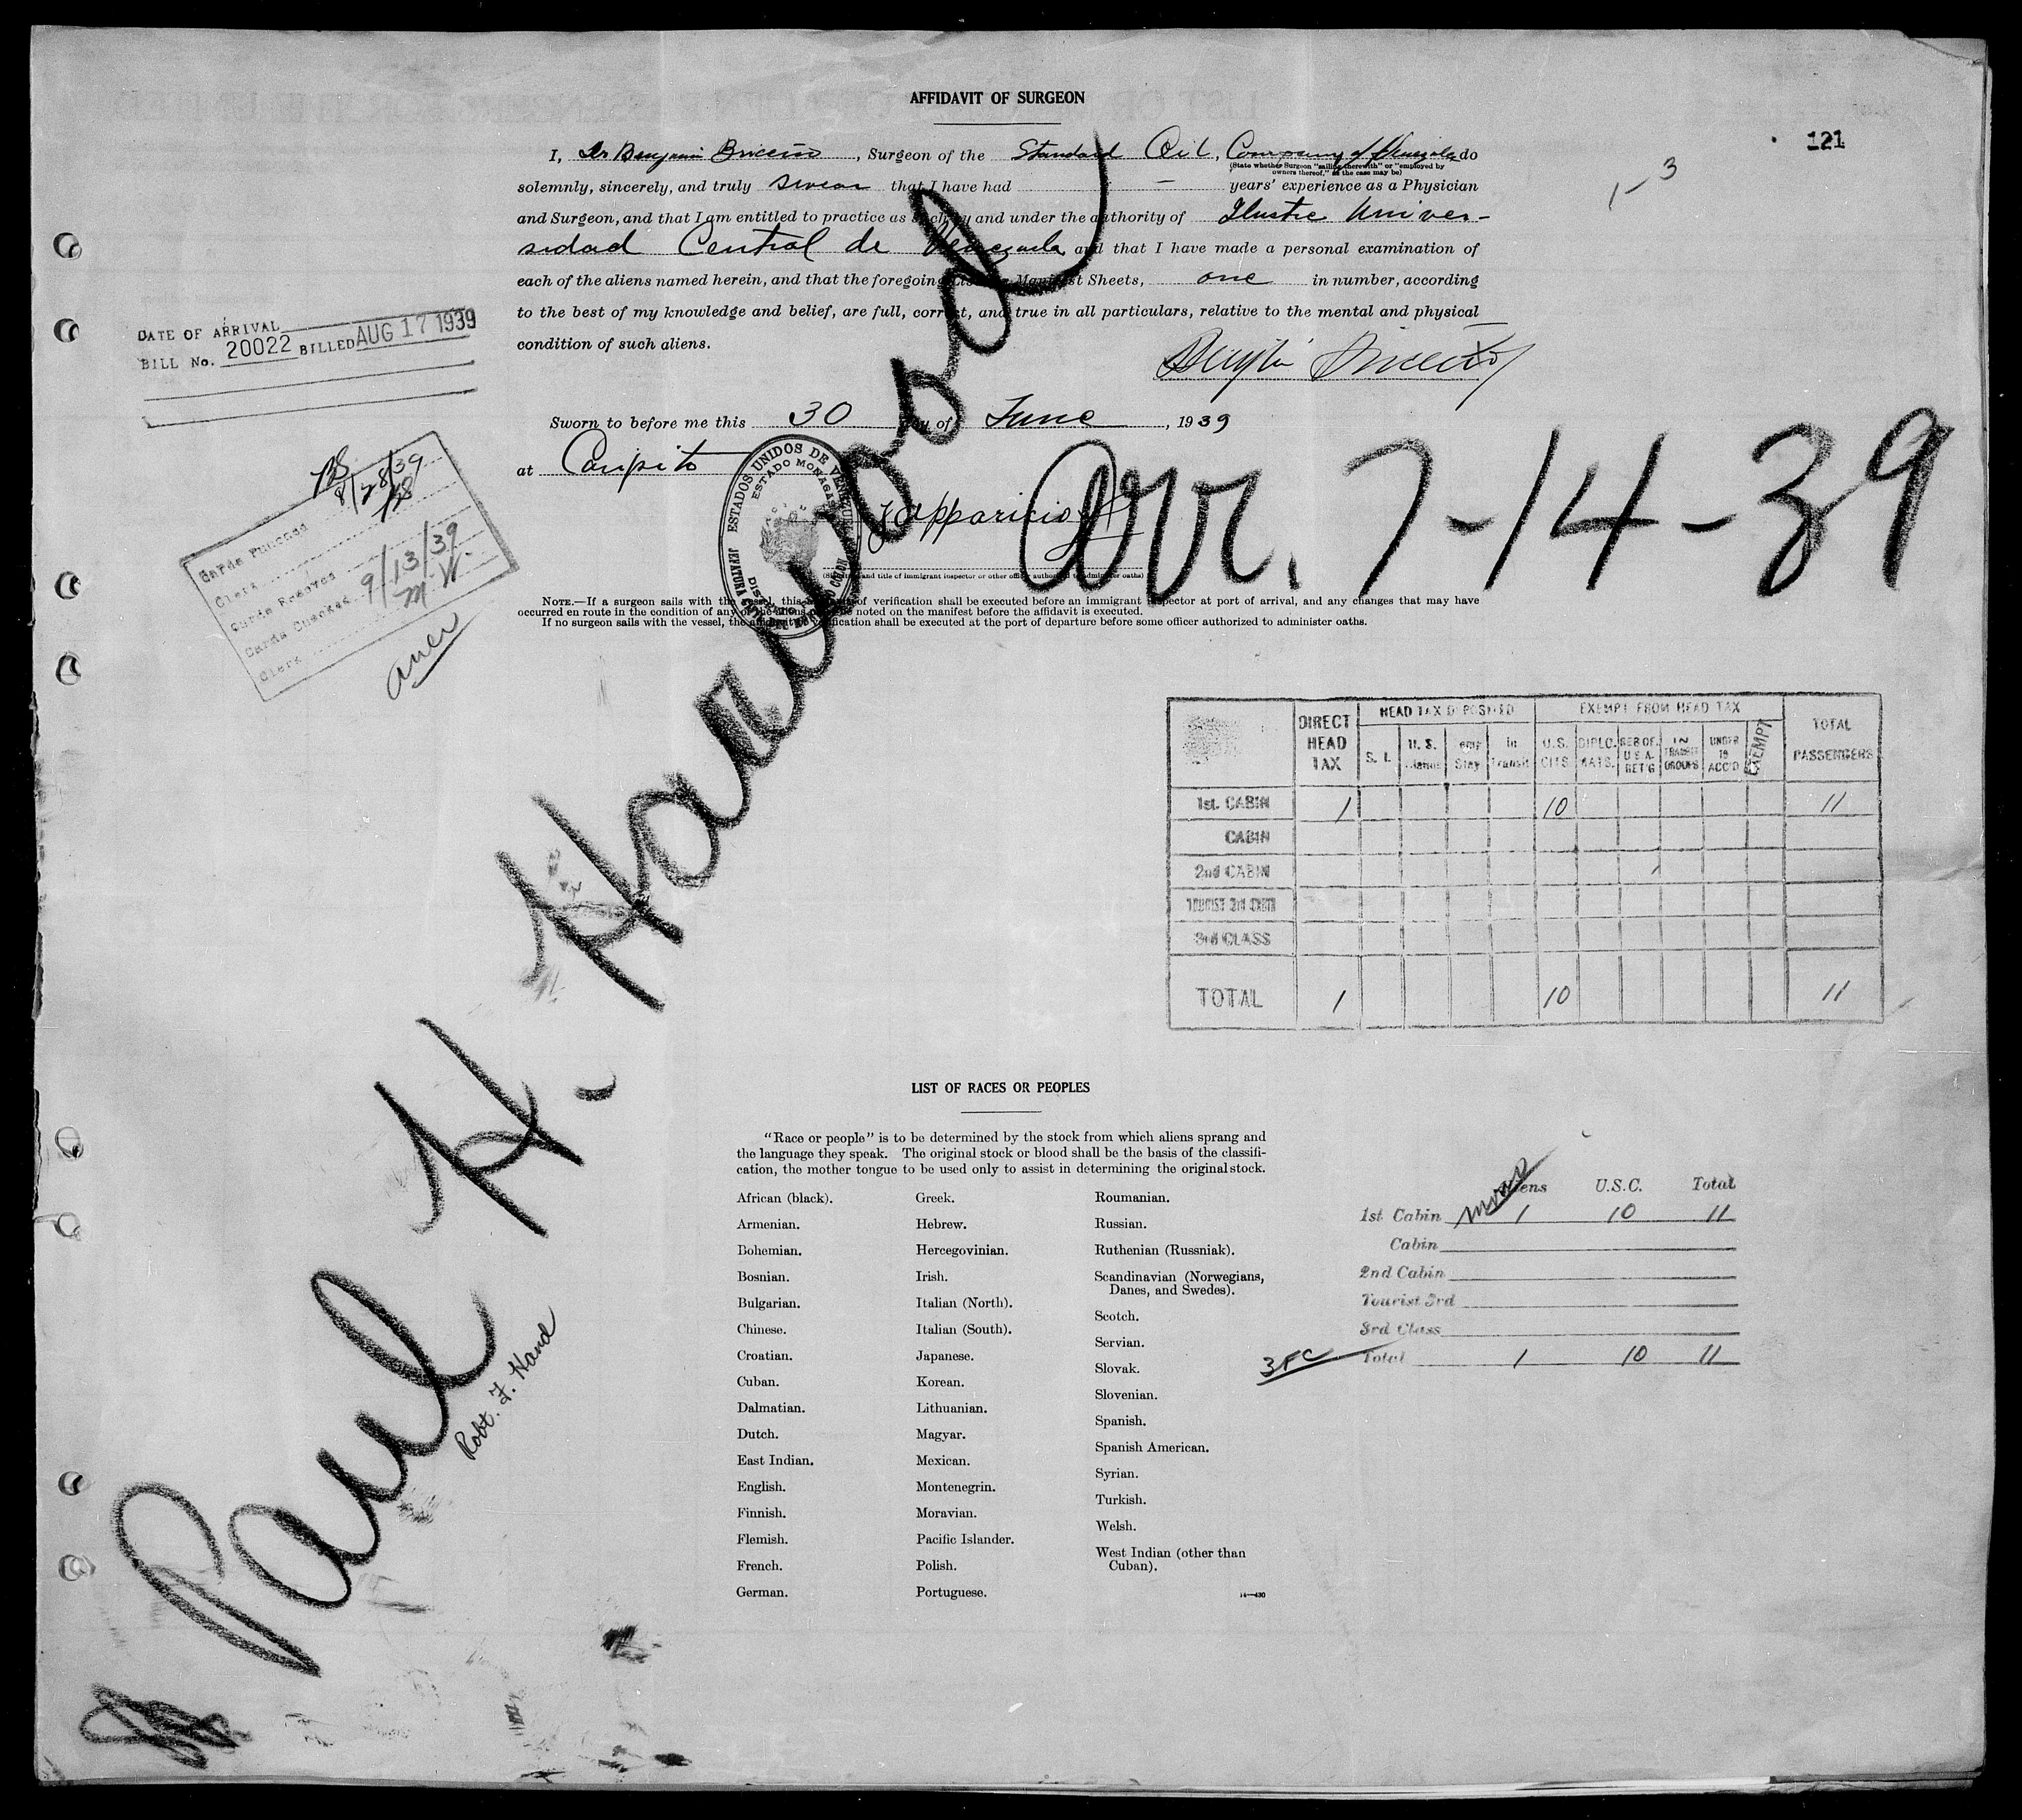 AFFIDAVIT OF SURGEON
121
1-3
I, Dr Benjamin Briceño, Surgeon of the Standard Oil, Company of Venezuela do
(State whether Surgeon "sailing therewith" or "employed by
owners thereof," as the case may be)
solemnly, sincerely, and truly swear that I have had — years' experience as a Physician
and Surgeon, and that I am entitled to practice as such by and under the authority of Ilustre Univer-
sidad Central de Venezuela and that I have made a personal examination of
each of the aliens named herein, and that the foregoing Lists or Manifest Sheets, one in number, according
to the best of my knowledge and belief, are full, correct, and true in all particulars, relative to the mental and physical
condition of such aliens.
Benjamin Briceño
DATE OF ARRIVAL
BILL No. 20022 BILLED AUG 17 1939
Sworn to before me this 30 day of June, 1939
at Caripito
ESTADOS UNIDOS DE VENEZUELA
ESTADO MONAGAS
JEFATURA
Arr. 7-14-39
(Signature and title of immigrant inspector or other officer authorized to administer oaths)
NOTE.—If a surgeon sails with the vessel, this affidavit of verification shall be executed before an immigrant inspector at port of arrival, and any changes that may have
occurred en route in the condition of any of the aliens must be noted on the manifest before the affidavit is executed.
If no surgeon sails with the vessel, the affidavit of verification shall be executed at the port of departure before some officer authorized to administer oaths.
8/28/39
Cards Punched
Clerk
Cards Red'ved
Cards Checked 9/13/39
Clerk M.W.
Paul H. Harwood
Robt. F. Hand
DIRECT HEAD TAX
HEAD TAX DEPOSITED
EXEMPT FROM HEAD TAX
TOTAL PASSENGERS
S. I.
U. S.
Temp Stay
In Transit
U.S. CITS
DIPLOMATS.
RES OF. U.S.A. RET'G
IN TRANSIT GROUPS
UNDER 16 ACC'D
EXEMPT
1st. CABIN 1 10 11
CABIN
2nd CABIN
TOURIST 3rd CABIN
3rd CLASS
TOTAL 1 10 11
LIST OF RACES OR PEOPLES
"Race or people" is to be determined by the stock from which aliens sprang and
the language they speak. The original stock or blood shall be the basis of the classifi-
cation, the mother tongue to be used only to assist in determining the original stock.
African (black).
Armenian.
Bohemian.
Bosnian.
Bulgarian.
Chinese.
Croatian.
Cuban.
Dalmatian.
Dutch.
East Indian.
English.
Finnish.
Flemish.
French.
German.
Greek.
Hebrew.
Hercegovinian.
Irish.
Italian (North).
Italian (South).
Japanese.
Korean.
Lithuanian.
Magyar.
Mexican.
Montenegrin.
Moravian.
Pacific Islander.
Polish.
Portuguese.
Roumanian.
Russian.
Ruthenian (Russniak).
Scandinavian (Norwegians,
Danes, and Swedes).
Scotch.
Servian.
Slovak.
Slovenian.
Spanish.
Spanish American.
Syrian.
Turkish.
Welsh.
West Indian (other than
Cuban).
14—430
Aliens U.S.C. Total
1st Cabin 1 10 11
Cabin
2nd Cabin
Tourist 3rd
3rd Class
Total 1 10 11